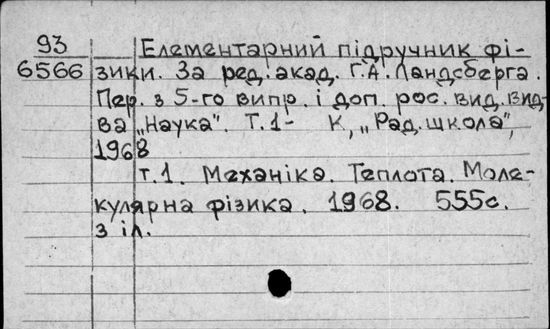 93 Елементарний підручник фі-
6566 зики. За ред. акад. Г.А. Ландсберга.
Пер. з 5-го випр. і доп. рос. вид. вид-
ва „Наука". Т.1- К, „Рад. школа",
1968
т.1. Механіка. Теплота. Моле-
кулярна фізика. 1968. 555с.
з іл.